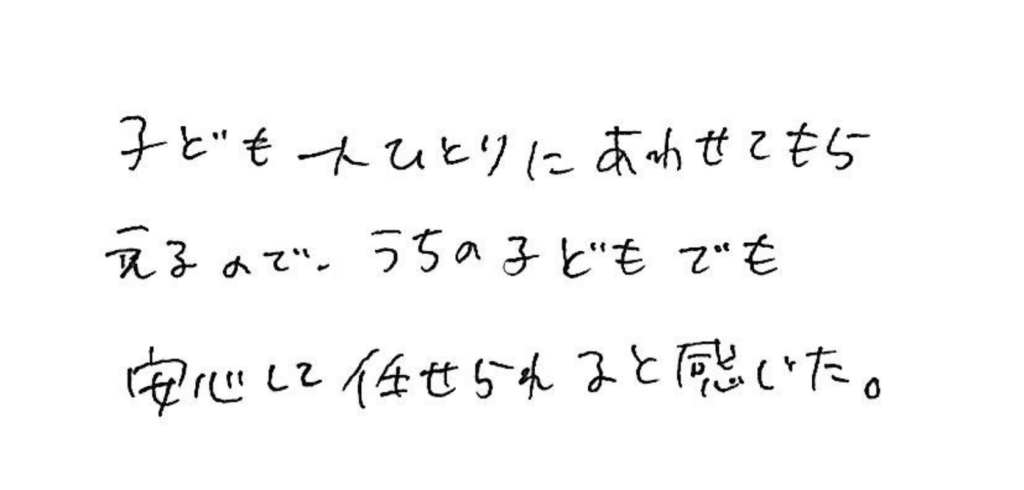 子ども一人ひとりにあわせてもら
えるので、うちの子どもでも
安心して任せられると感じた。